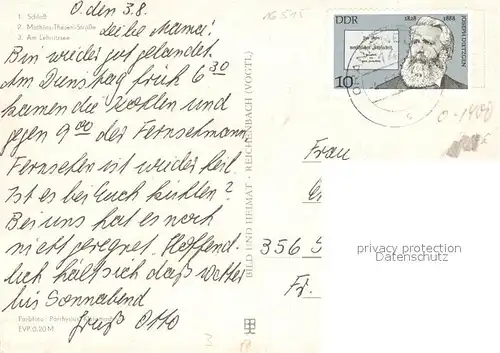 O. den 3.8.
1. Schloß
2. Mathias-Thesen-Straße
3. Am Lehnitzsee
Liebe Mama!
Bin wieder gut gelandet
Am Dienstag früh 6 30
kamen die Kohlen und
gegen 9 00 der Fernsehmann
Fernsehen ist wieder heil.
Ist es bei Euch kühler?
Bei uns hat es noch
nicht geregnet. Hoffend-
lich hält sich daß Wetter
bis Sonnabend
Gruß Otto
EVP: 0,20 M
BILD UND HEIMAT · REICHENBACH (VOGTL)
DDR
1828 1888
JOSEPH DIETZGEN
10
Frau
356 S
Fr.
privacy protection
Datenschutz
3